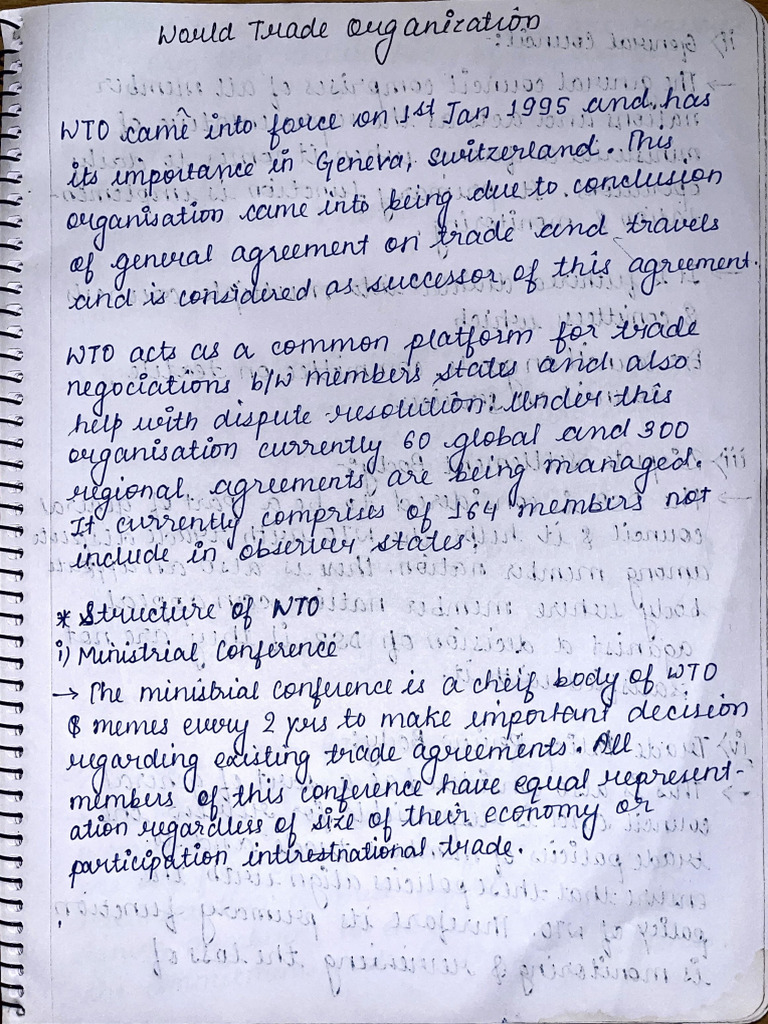 World Trade Organization
WTO came into force on 1st Jan 1995 and has
its importance in Geneva, Switzerland. This
organisation came into being due to conclusion
of general agreement on trade and travels
and is considered as successor of this agreement.
WTO acts as a common platform for trade
negociations b/w members states and also
help with dispute resolution. Under this
organisation currently 60 global and 300
regional agreements are being managed.
It currently comprises of 164 members not
include in observer states.
* Structure of WTO
i) Ministrial Conference
→ The ministrial conference is a cheif body of WTO
& memes every 2 yrs to make important decision
regarding existing trade agreements. All
members of this conference have equal represent-
ation regardless of size of their economy or
participation intirestnational trade.